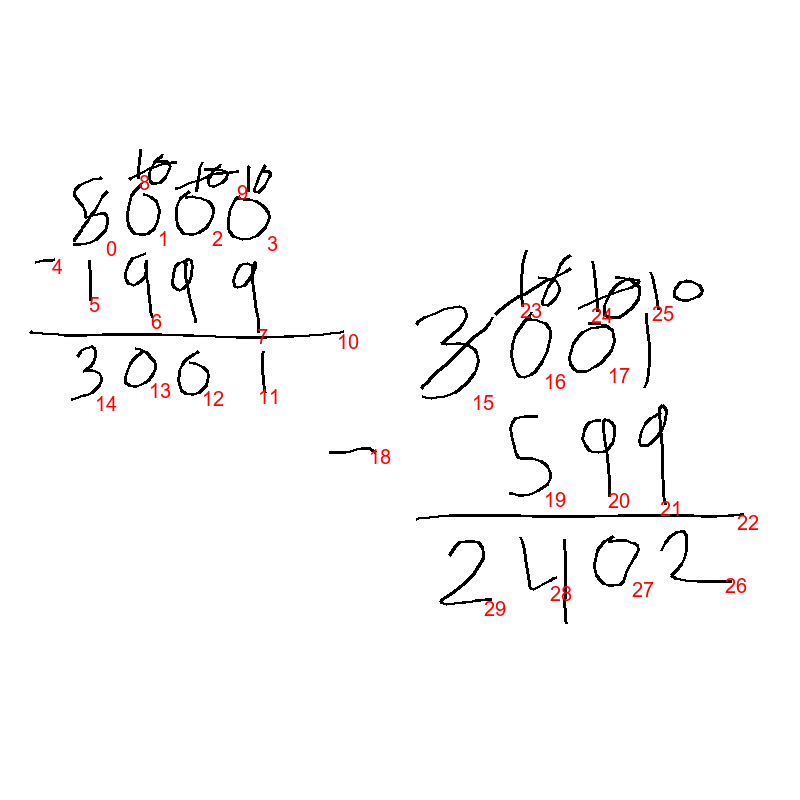 10 10 10
8 9
8000
0 1 2 3
- 1999
4 5 6 7
10
3001
14 13 12 11
10 10 10
23 24 25
3001
15 16 17
- 599
18 19 20 21
22
2402
29 28 27 26